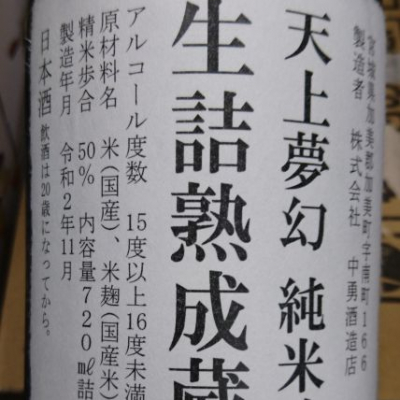 宮城県加美郡加美町字南町166
製造者 株式会社 中勇酒造店
天上夢幻 純米
生詰熟成蔵
アルコール度数 15度以上16度未満
原材料名 米(国産)、米麹(国産米)
精米歩合 50% 内容量720ml詰
製造年月 令和2年11月
日本酒 飲酒は20歳になってから。